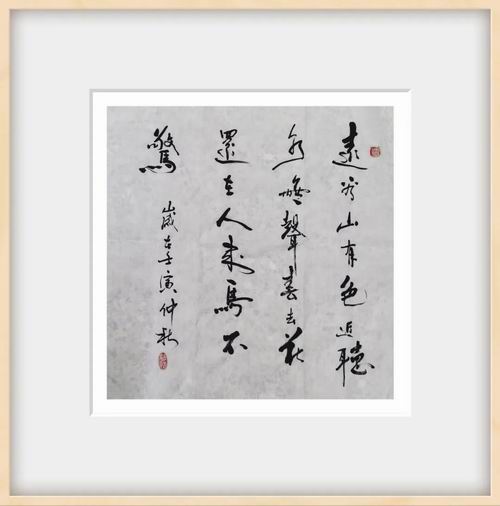 遠看山有色近聽
水無聲春去花
還在人來鳥不
驚
歲在壬寅仲秋